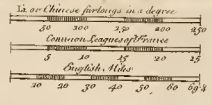 Li or Chinese furlongs in a degree
50 100 150 200 250
Common Leagues of France
5 10 15 20 25
English Miles
10 20 30 40 50 60 69½